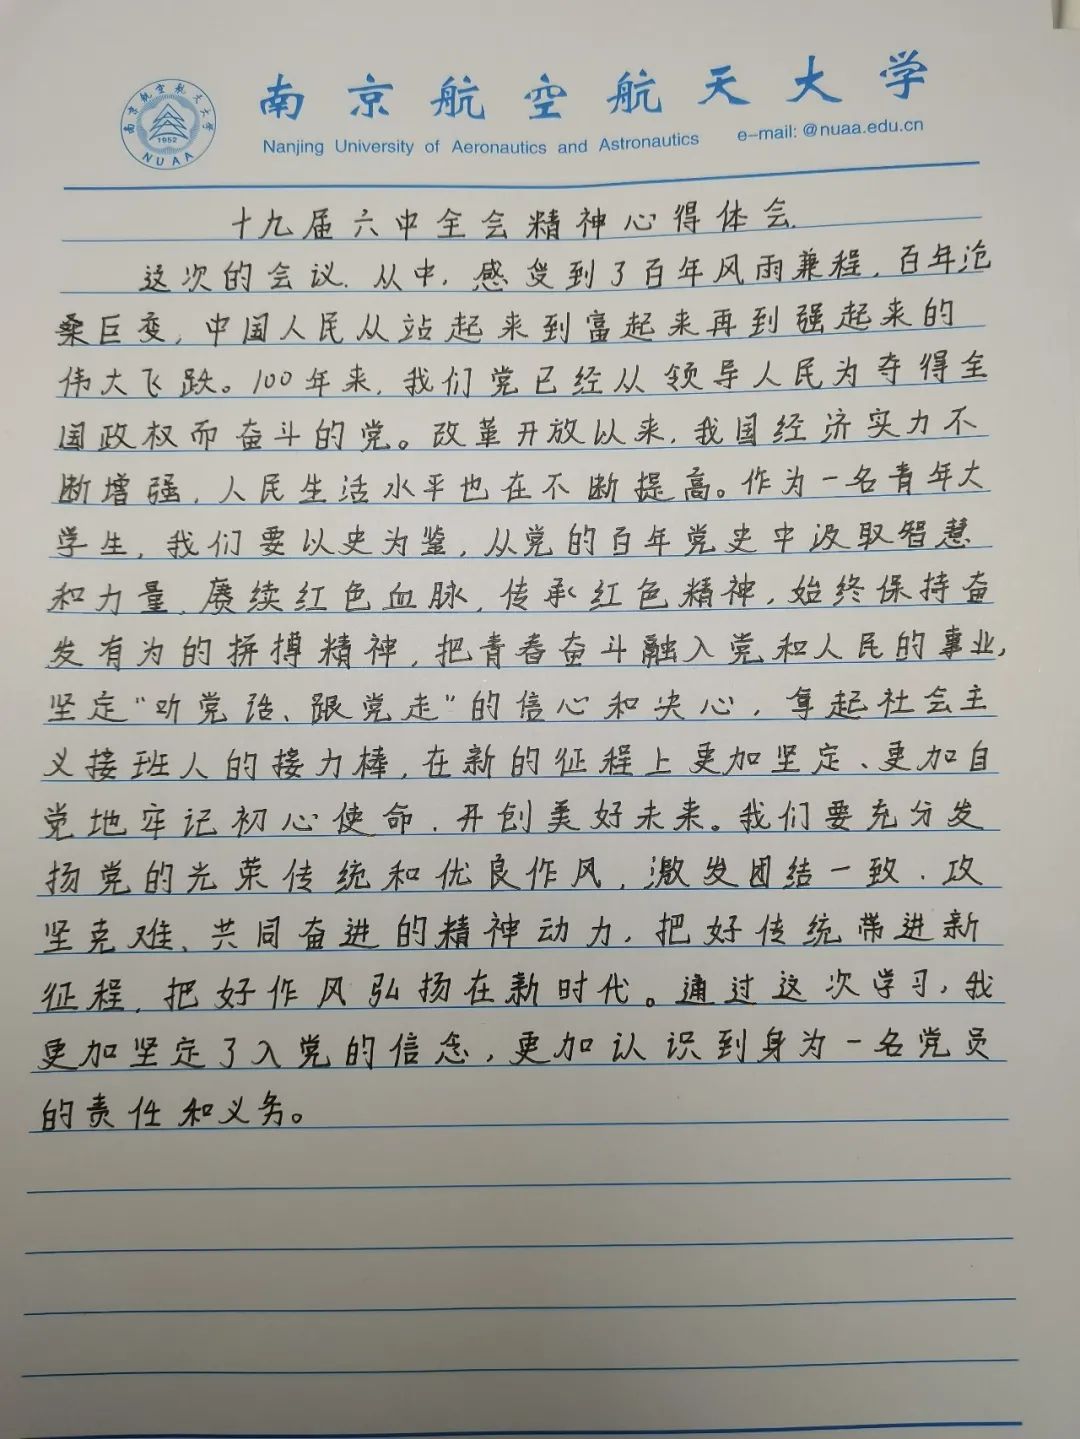 南京航空航天大学
1952
NUAA
Nanjing University of Aeronautics and Astronautics e-mail: @nuaa.edu.cn
十九届六中全会精神心得体会.
这次的会议.从中,感受到了百年风雨兼程,百年沧
桑巨变,中国人民从站起来到富起来再到强起来的
伟大飞跃。100年来,我们党已经从领导人民为夺得全
国政权而奋斗的党。改革开放以来,我国经济实力不
断增强,人民生活水平也在不断提高。作为一名青年大
学生,我们要以史为鉴,从党的百年党史中汲取智慧
和力量,赓续红色血脉,传承红色精神,始终保持奋
发有为的拼搏精神,把青春奋斗融入党和人民的事业,
坚定“听党话、跟党走”的信心和决心,拿起社会主
义接班人的接力棒,在新的征程上更加坚定、更加自
党地牢记初心使命,开创美好未来。我们要充分发
扬党的光荣传统和优良作风,激发团结一致、攻
坚克难、共同奋进的精神动力,把好传统带进新
征程,把好作风弘扬在新时代。通过这次学习,我
更加坚定了入党的信念,更加认识到身为一名党员
的责任和义务。